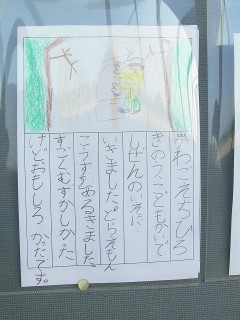 かわごえちひろ
きのう、こどもかいで
しぜんのいえに
いきました。どらえもん
こうすをあるきました
すごくむずかしかった
けどおもしろかったです。